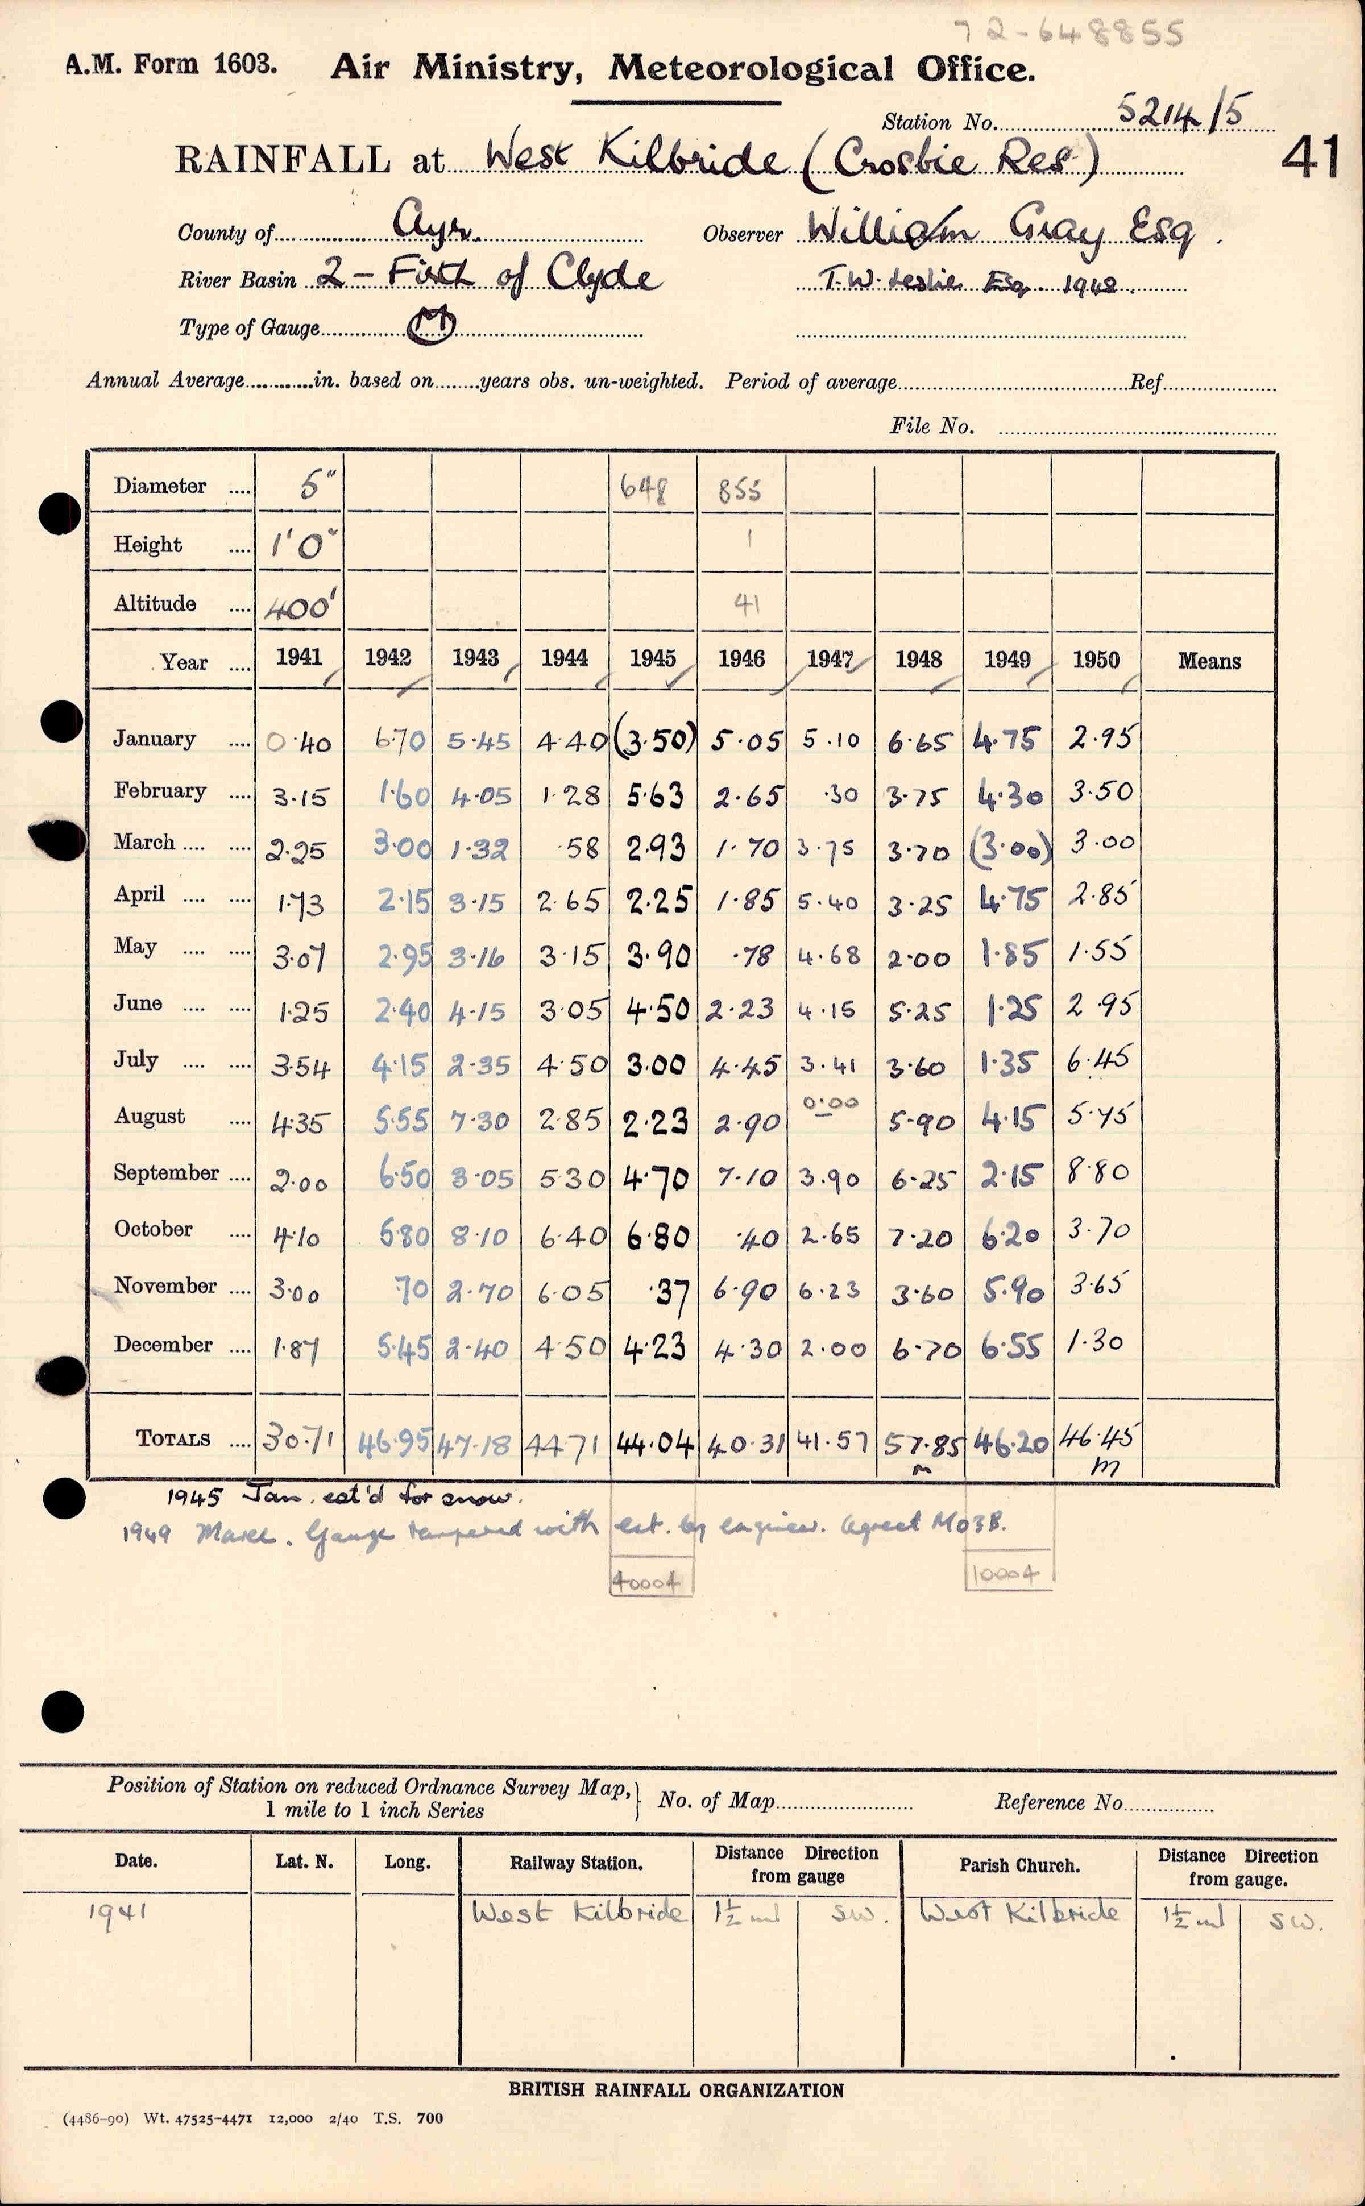 72-648855
A.M. Form 1603. Air Ministry, Meteorological Office.
Station No. 5214/5
RAINFALL at West Kilbride (Crosbie Res) 41
County of Ayr. Observer William Gray Esq.
River Basin 2 - Firth of Clyde T.W. Leslie Esq. 1948.
Type of Gauge M
Annual Average in. based on years obs. un-weighted. Period of average Ref
File No.
Diameter 5" 648 855
Height 1'0" 1
Altitude 400' 41
Year 1941 1942 1943 1944 1945 1946 1947 1948 1949 1950 Means
January 0.40 6.70 5.45 4.40 (3.50) 5.05 5.10 6.65 4.75 2.95
February 3.15 1.60 4.05 1.28 5.63 2.65 .30 3.75 4.30 3.50
March 2.25 3.00 1.32 .58 2.93 1.70 3.75 3.70 (3.00) 3.00
April 1.73 2.15 3.15 2.65 2.25 1.85 5.40 3.25 4.75 2.85
May 3.07 2.95 3.16 3.15 3.90 .78 4.68 2.00 1.85 1.55
June 1.25 2.40 4.15 3.05 4.50 2.23 4.15 5.25 1.25 2.95
July 3.54 4.15 2.35 4.50 3.00 4.45 3.41 3.60 1.35 6.45
August 4.35 5.55 7.30 2.85 2.23 2.90 0.00 5.90 4.15 5.75
September 2.00 6.50 3.05 5.30 4.70 7.10 3.90 6.25 2.15 8.80
October 4.10 5.80 8.10 6.40 6.80 .40 2.65 7.20 6.20 3.70
November 3.00 .70 2.70 6.05 .37 6.90 6.23 3.60 5.90 3.65
December 1.87 5.45 2.40 4.50 4.23 4.30 2.00 6.70 6.55 1.30
TOTALS 30.71 46.95 47.18 44.71 44.04 40.31 41.57 57.85 46.20 46.45
m m
1945 Jan. est'd for snow.
1949 March. Gauge tampered with est. by engineer. Agreed MO3B.
40004 10004
Position of Station on reduced Ordnance Survey Map, No. of Map Reference No
1 mile to 1 inch Series
Date. Lat. N. Long. Railway Station. Distance Direction from gauge Parish Church. Distance Direction from gauge.
1941 West Kilbride 1½ ml SW. West Kilbride 1½ ml SW.
BRITISH RAINFALL ORGANIZATION
(4486-90) Wt. 47525-4471 12,000 2/40 T.S. 700